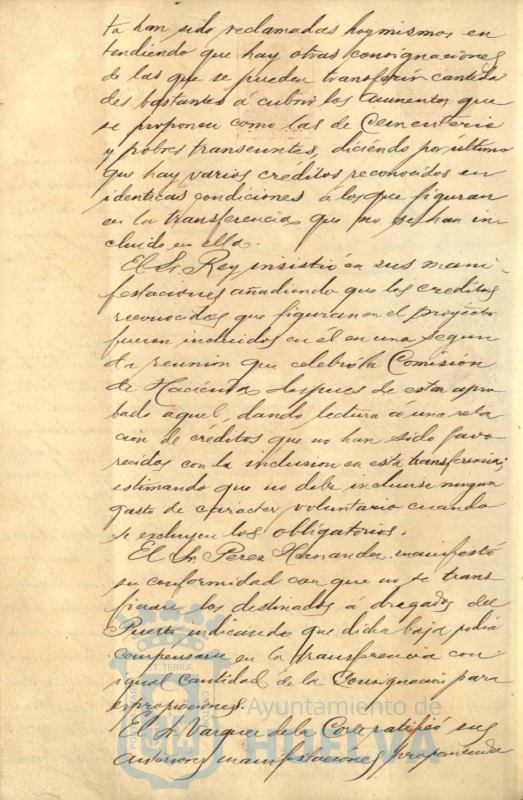 ta han sido reclamadas hoy mismos en
tendiendo que hay otras consignaciones
de las que se pueden transferir cantida
des bastantes á cubrir los aumentos que
se proponen como las de Cementerio
y pobres transeuntes, diciendo por ultimo
que hay varios créditos reconocidos en
identicas condiciones á los que figuran
en la transferencia que no se han in
cluido en ella.
El Sr. Rey insistió en sus mani-
festaciones añadiendo que los creditos
reconocidos que figuran en el proyecto
fueron incluidos en él en una segun
da reunion que celebró la Comisión
de Hacienda despues de estar apro
bado aquel, dando lectura a una rela
ción de créditos que no han sido favo
recidos con la inclusion en esta transferencia;
estimando que no debe incluirse ningun
gasto de carácter voluntario cuando
se excluyen los obligatorios.
El Sr. Perez Hernandez manifestó
su conformidad con que no se trans
firiera los destinados á dragados del
Puerto, indicando que dicha baja podia
compensarse en la transferencia con
igual cantidad de la Consignación para
expropiaciones.
El Sr. Vazquez de la Corte ratificó sus
anteriores manifestaciones proponiendo
Ayuntamiento de
HUELVA